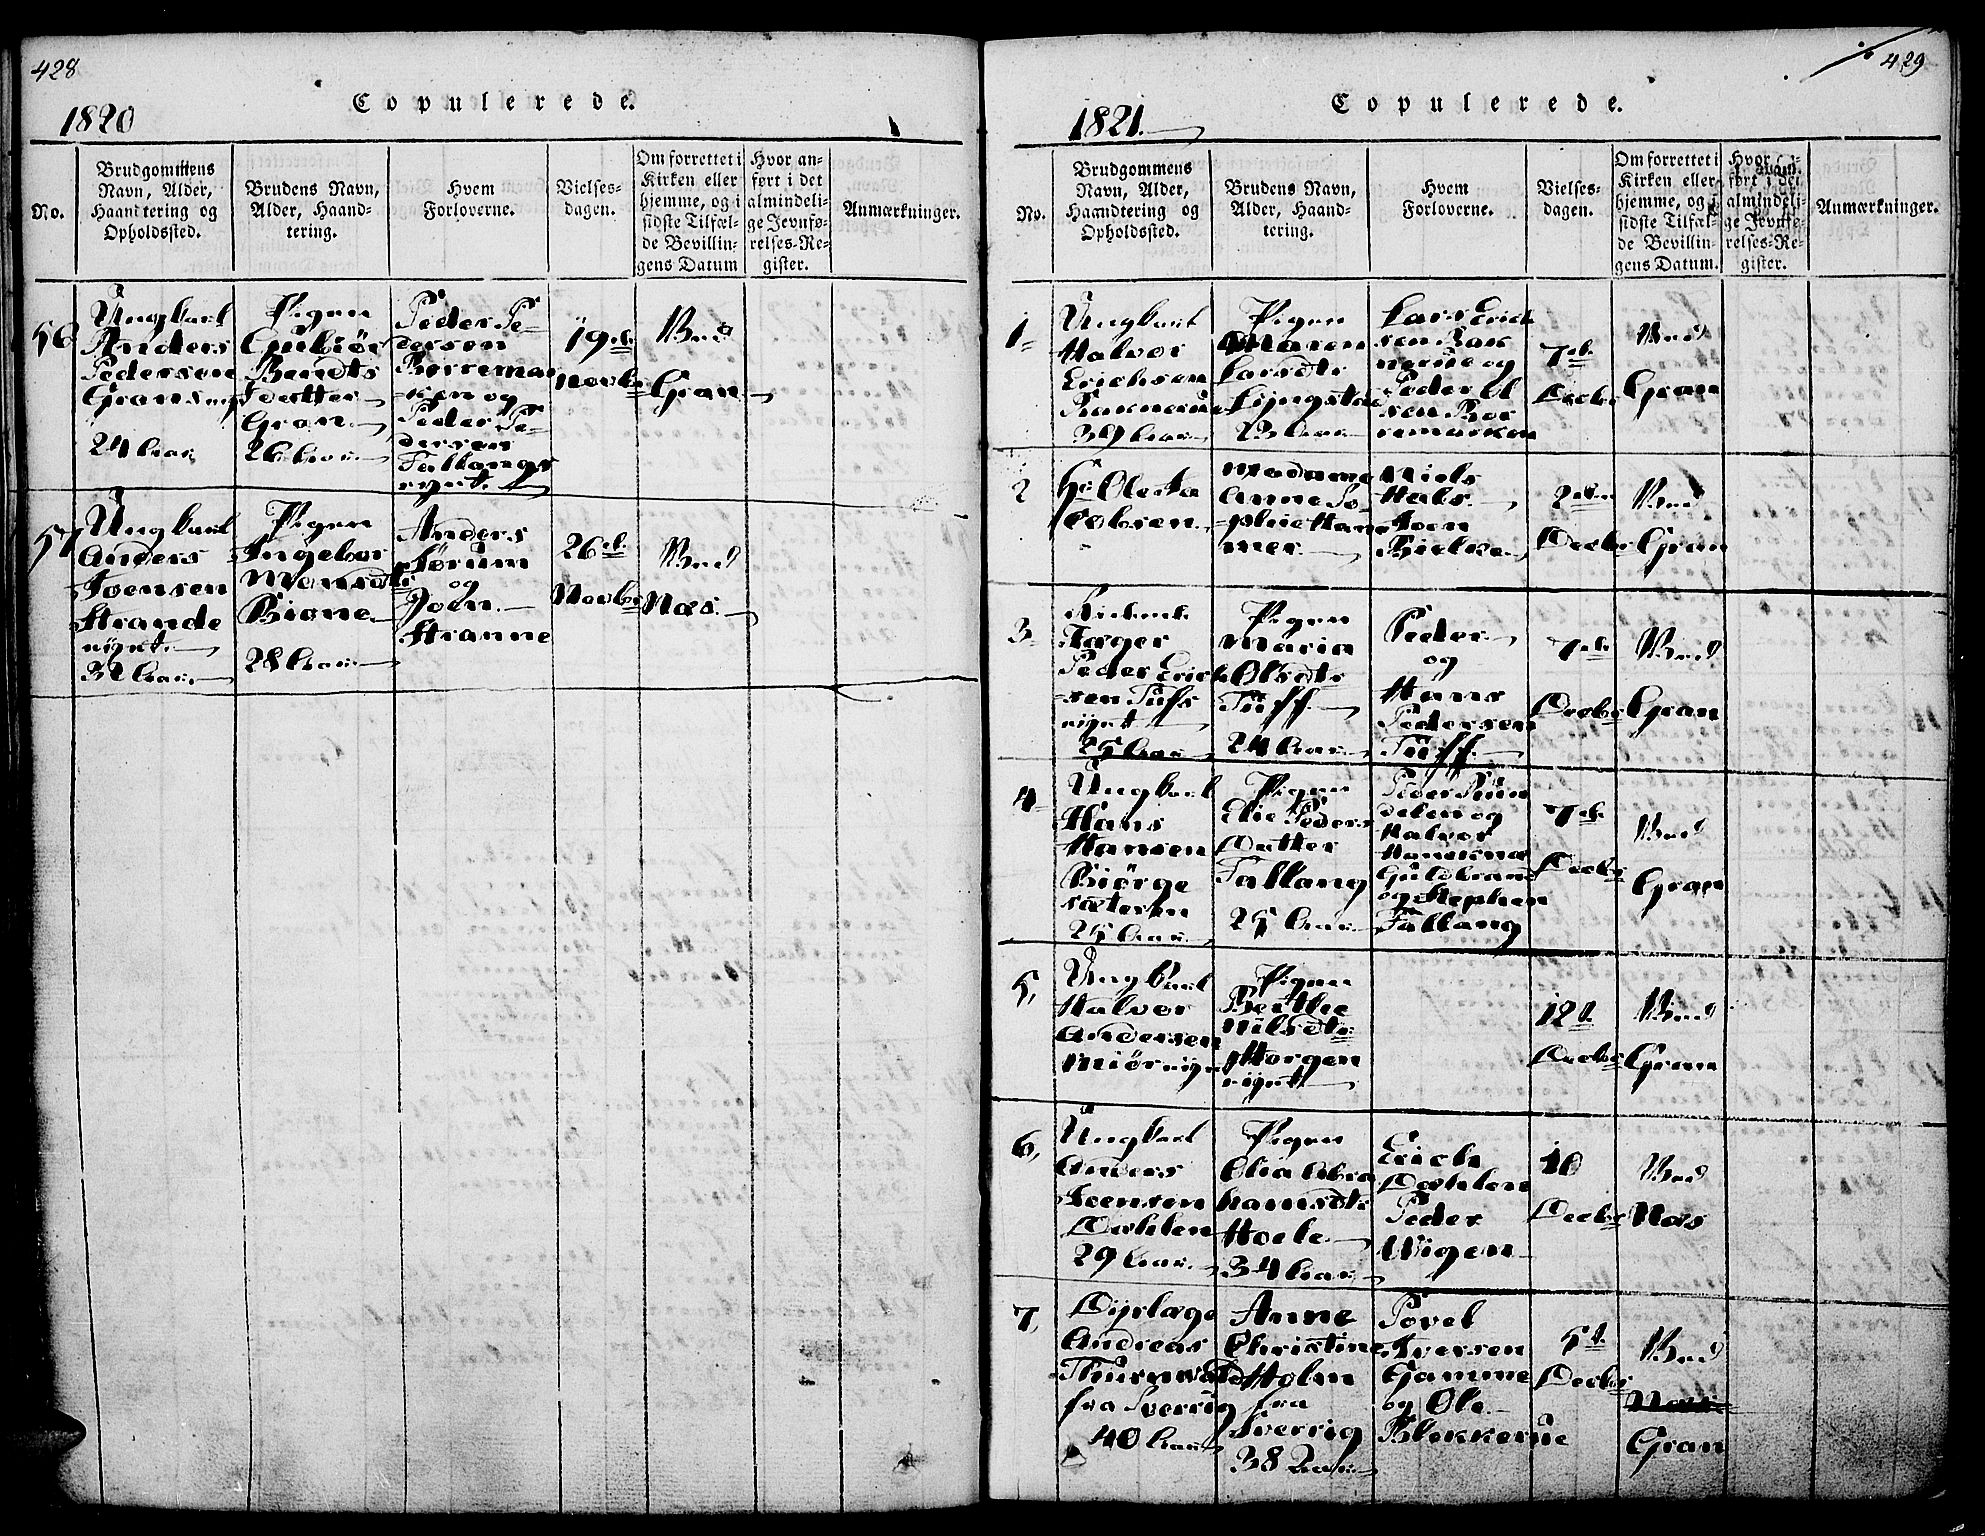 428
Copulerede.
1820
No.
Brudgommens
Navn, Alder,
Haandtering og
Opholdssted.
Brudens Navn,
Alder, Haand-
tering.
Hvem
Forloverne.
Vielses-
dagen.
Om forrettet i
Kirken eller
hjemme, og i
sidste Tilfæl-
de Bevillin-
gens Datum
Hvor an-
ført i det
almindeli-
ge Jevnfø-
relses-Re-
gister.
Anmærkninger.
56
Ungkarl
Anders
Pedersen
Granseje
24 Aar
Pigen
Gubiør
Bendts
Datter
Gran.
26 Aar.
Peder Pe-
dersen
Børremar
ken og
Peder Pe-
dersen
Fallangs
eyet.
19de
Novbr
Gran.
57
Ungkarl
Anders
Joensen
Strande
eyet.
32 Aar.
Pigen
Ingebor
Monsdtr
Bione
28 Aar.
Anders
Sørum
og
Joen
Stranne
26de
Novbr
Næs.
429
Copulerede.
1821.
No.
Brudgommens
Navn, Alder,
Haandtering og
Opholdssted.
Brudens Navn,
Alder, Haand-
tering.
Hvem
Forloverne.
Vielses-
dagen.
Om forrettet i
Kirken eller
hjemme, og i
sidste Tilfæl-
de Bevillin-
gens Datum.
Hvor an-
ført i det
almindeli-
ge Jevnfø-
relses-Re-
gister.
Anmærkninger.
1
Ungkarl
Halvor
Erichsen
Rannerue
39 Aar
Pigen
Maren
Larsdtr
Lyngstad
23 Aar
Lars Erich
sen Ran
nerue og
Peder Ol
sen Bor
remarken
7de
Decbr
Gran
2
Hr Ole Ja
cobsen
Madame
Anne So-
phie Ham
mer
Niels
Hals
Joen
Bielke
2den
Decbr
Gran
3
Jæger
Peder Erich
sen Tufs
eyet
25 Aar
Pigen
Maria
Olsdtr
Tuff.
24 Aar
Peder
og
Hans
Pedersen
Tuff.
7de
Decbr
Gran
4
Ungkarl
Hans
Hansen
Biørge
sæteren
25 Aar
Pigen
Elie Peders
Datter
Fallang
25 Aar
Peder Run
delen og
Halvor
Guldbrand
og Stephen
Fallang
7de
Decbr
Gran
5,
Ungkarl
Halvor
Andersen
Miør eyet
Pigen
Berthe
Nilsdtr
Horgen
eyet
12t
Decbr
Gran
6,
Ungkarl
Anders
Joensen
Dæhlen
29 Aar.
Pigen
Olia Abra
hamsdtr
Hoele
34 Aar
Erich
Dæhlen
Peder
Wigen
10
Decbr
Næs
7,
Dyrlæge
Andreas
fra Sverrig
40 Aar
Anne
Christine
Holm
fra
Sverrig
38 Aar
Povel
Iversen
Gamme
og Ole
Blekkerue
5t
Decbr
Gran